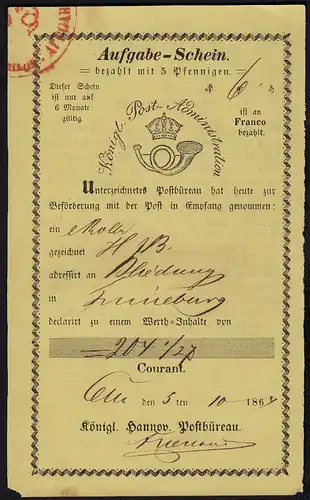 Aufgabe-Schein.
bezahlt mit 5 Pfennigen.
Dieser Schein
ist nur auf
6 Monate
gültig.
6
ist an
Franco
bezahlt.
Königl. Post-Administration
Unterzeichnetes Postbüreau hat heute zur
Beförderung mit der Post in Empfang genommen:
ein
gezeichnet H B.
addressirt an
in Lüneburg
declarirt zu einem Werth-Inhalte von
Courant.
den 5 ten 10 1864
Königl. Hannov. Postbüreau.